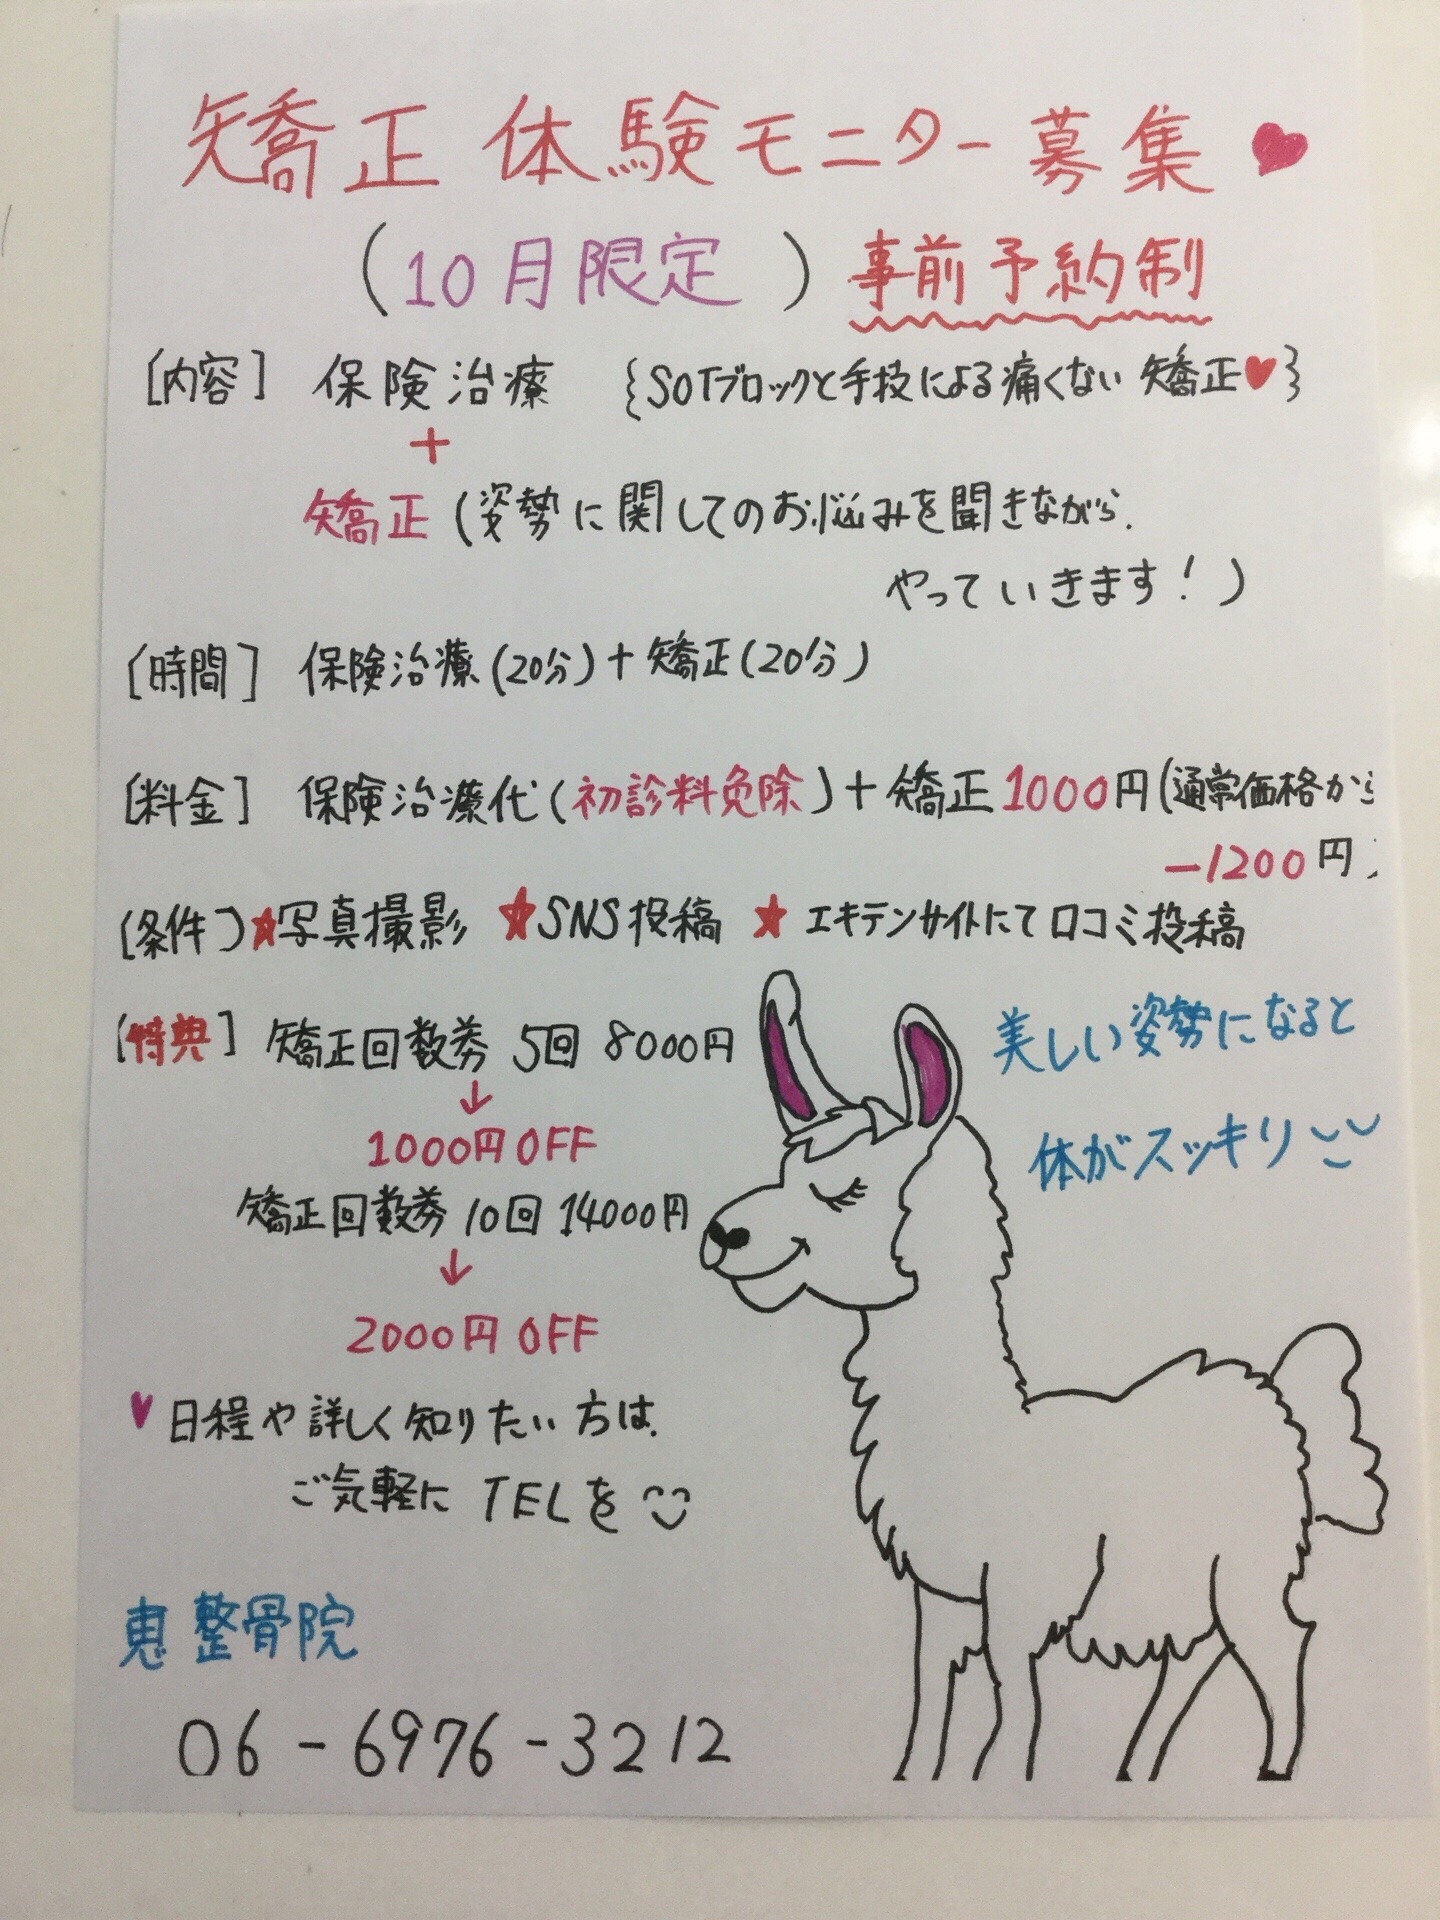 矯正体験モニター募集♥
(10月限定) 事前予約制
[内容] 保険治療 {SOTブロックと手技による痛くない矯正♥}
+
矯正(姿勢に関してのお悩みを聞きながら、
やっていきます!)
[時間] 保険治療(20分)+矯正(20分)
[料金] 保険治療代(初診料免除)+矯正1000円(通常価格から
-1200円)
[条件]★写真撮影 ★SNS投稿 ★エキテンサイトにて口コミ投稿
[特典] 矯正回数券 5回 8000円
↓
1000円OFF
矯正回数券 10回 14000円
↓
2000円OFF
美しい姿勢になると
体がスッキリ
♥日程や詳しく知りたい方は、
ご気軽にTELを
恵整骨院
06-6976-3212